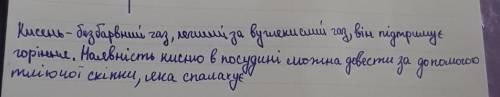 Кисень - безбарвний газ, легший за вуглекислий газ, він підтримує
горіння. Наявність кисню в посудині можна довести за допомогою
тліючої скіпки, яка спалахує